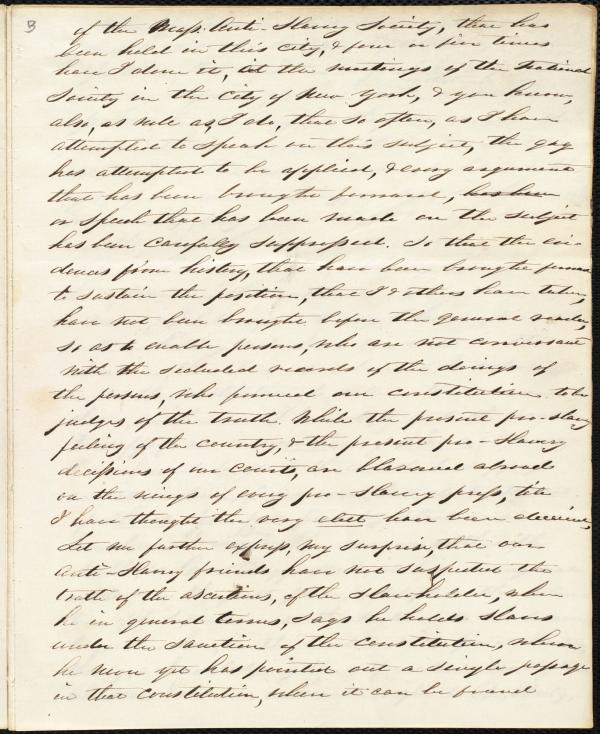 3
of the Mass. Anti-Slavery Society, that has
been held in this city, & four or five times
have I done it, at the meetings of the National
Society in the City of New York, & you know,
also, as well as, I do, that so often, as I have
attempted to speak on this subject, the gag
has attempted to be applied, & every argument
that has been brought forward, has been
or speech that has been made on the subject
has been carefully suppressed. So that the evi-
dences from history, that have been brought forward
to sustain the position, that I & others have taken,
have not been brought before the general reader,
so as to enable persons, who are not conversant
with the secluded records of the doings of
the persons, who formed our constitution to be
judges of the truth. While the present pro-slavery
feeling of the country, & the present pro-Slavery
decissions of our courts, are blasoned abroad
on the wings of every pro-Slavery press, till
I have thought the very elect have been deceived.
Let me further express, my surprise, that our
Anti-Slavery friends have not suspected the
truth of the assertions, of the slaveholder, when
he in general terms, says he holds slaves
under the sanction of the constitution, when
he never yet has pointed out a single passage
in that constitution, where it can be found